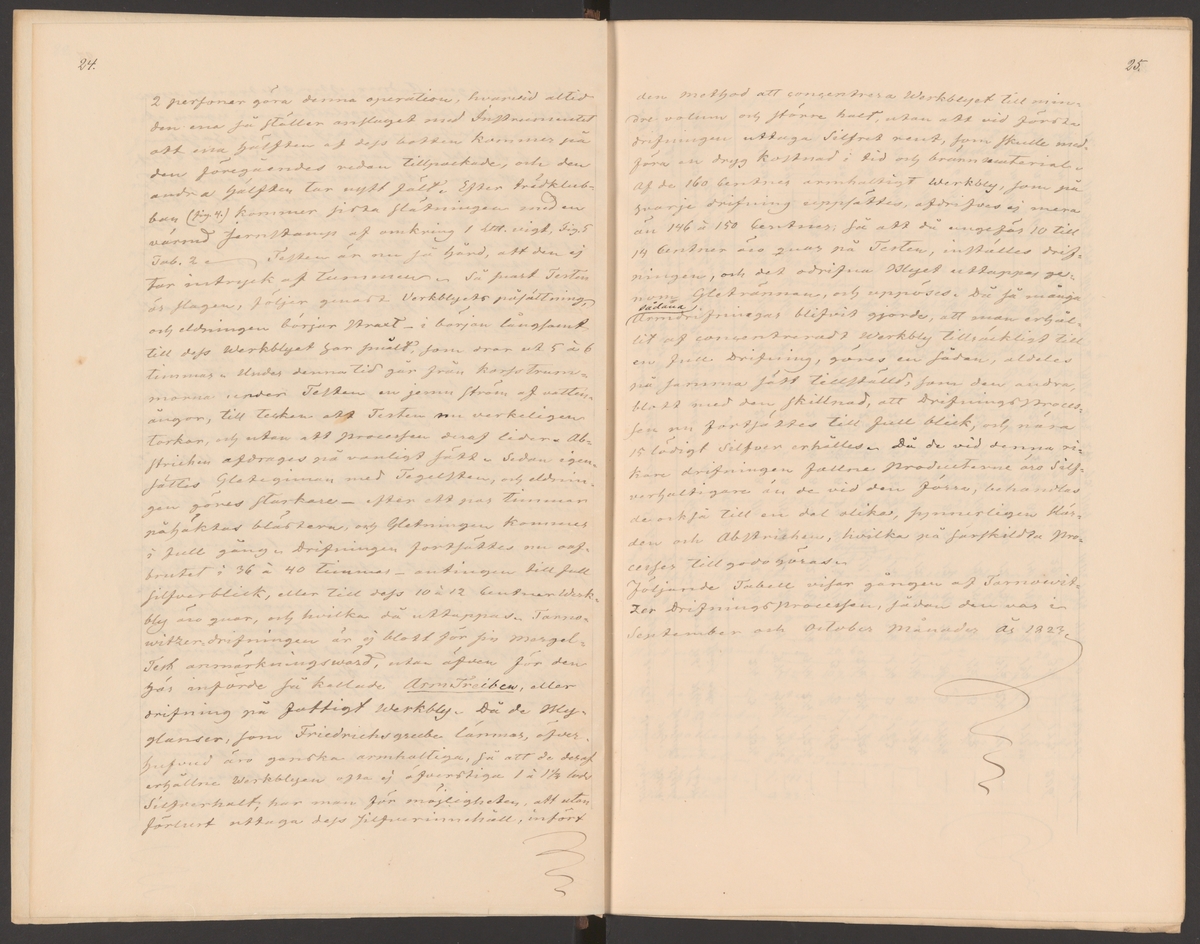 24.
2 personer göra denna operation, hvarvid altid
den ena så ställer anslaget med Instrumentet
att ena hälften af dess botten kommer på
den föregåendes redan tillpackade, och den
andra hälften tar nytt fält. Efter trädklub-
ban (fig 4.) kommer sista slätningen med en
värmd Jernstamp af omkring 1 vigt, Fig 5
Tab. 2 Testen är nu så hård, att den ej
tar intryck af tummen. Så snart Testen
är slagen, följer genast Verkblyets påsättning,
och eldningen börjar strax – i början långsamt
till dess Werkblyet har smält, som drar ut 5 à 6
timmar. Under denna tid går från korstrum-
morna under Testen en jemn ström af vatten-
ångor, till tecken att Testen nu verkeligen
torkar, och utan att processen deraf lider. Ab-
strichen afdrages på vanligt sätt. Sedan igen-
sättes med Tegelsten, och eldnin-
gen göres starkare – efter ett par timmar
påhäktas blästern, och Gletningen kommer
i full gång. Drifningen fortsättes nu oaf-
brutet i 36 à 40 timmar – antingen till full
silfverblick, eller till dess 10 à 12 Centner Werk-
bly äro qvar, och hvilka då uttappas. Tarno-
witzer drifningen är ej blott för sin Mergel-
Test anmärkningsvärd, utan äfven för den
här införde så kallade Arm Treiben, eller
drifning på fattigt Werkbly. Då de Bly-
glanser, som Friedrichsgrube lämnar, öfver-
hufvud äro ganska armhaltiga, så att de deraf
erhållne Werkblyen ofta ej öfverstiga 1 à 1¼ lods
Silfverhalt, har man för möjligheten, att utan
förlust uttaga dess silfverinnehåll, infört
25.
den method att concentrera Werkblyet till min-
dre volum och större halt, utan att vid första
drifningen uttaga Silfret rent, som skulle med-
föra en dryg kostnad i tid och brännmaterial.
Af de 160 Centner armhaltigt Werkbly, som på
hvarje drifning uppsättes, afdrifves ej mera
än 146 à 150 Centner, så att då ungefär 10 till
14 Centner äro qvar på Testen, inställes drif-
ningen, och det odrifna Blyet uttappas ge-
nom Gleträmnan, och upphöses. Då så många
sådana
Armdrifningar blifvit gjorde, att man erhål-
lit af concentreradt Werkbly tillräckligt till
en full drifning, göres en sådan, aldeles
på samma sätt tillställd, som den andra,
blott med den skillnad, att Drifnings proces-
sen nu fortsättes till full blick, och nära
15 lödigt Silfver erhålles. Då de vid denna ri-
kare drifningen fallne Producterne äro Silf-
verhaltigare än de vid den förra, behandlas
de också till en del olika, synnerligen Här-
den och Abstrichen, hvilka på särskildta Pro-
cesser tillgodogöras.
Följande Tabell visar gången af Tarnowit-
zer Drifnings processen, sådan den var i
September och October Månader År 1823.